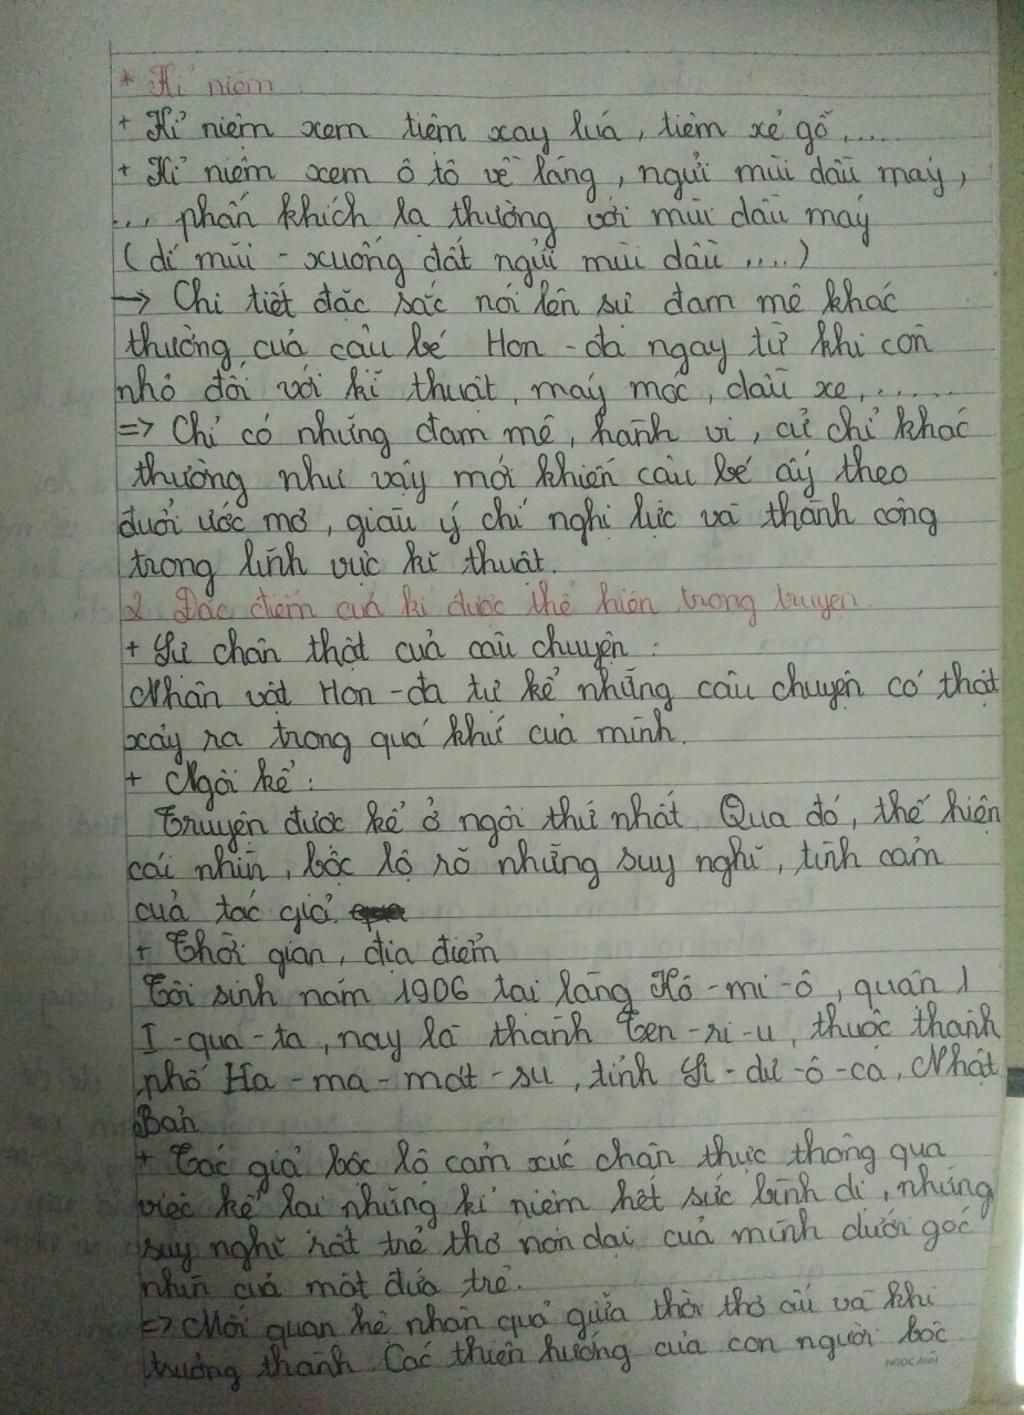 * Kỉ niệm
+ Kỉ niệm xem tiệm xay lúa, tiệm xẻ gỗ,...
+ Kỉ niệm xem ô tô về làng, ngửi mùi dầu máy,
... phấn khích lạ thường với mùi dầu máy
(dí mũi - xuống đất ngửi mùi dầu ....)
→ Chi tiết đặc sắc nói lên sự đam mê khác
thường của cậu bé Hon-đa ngay từ khi còn
nhỏ đối với kĩ thuật, máy móc, dầu xe,......
=> Chỉ có những đam mê, hành vi, cử chỉ khác
thường như vậy mới khiến cậu bé ấy theo
đuổi ước mơ, giàu ý chí nghị lực và thành công
trong lĩnh vực kĩ thuật.
2. Đặc điểm của kí được thể hiện trong truyện.
+ Sự chân thật của câu chuyện :
Nhân vật Hon-đa tự kể những câu chuyện có thật
xảy ra trong quá khứ của mình.
+ Ngôi kể :
Truyện được kể ở ngôi thứ nhất. Qua đó, thể hiện
cái nhìn, bộc lộ rõ những suy nghĩ, tình cảm
của tác giả.
+ Thời gian, địa điểm
Tôi sinh năm 1906 tại làng Kô-mi-ô, quận
I-qua-ta, nay là thành Ten-ri-u, thuộc thành
phố Ha-ma-mát-su, tỉnh Si-dư-ô-ca, Nhật
Bản
+ Tác giả bộc lộ cảm xúc chân thực thông qua
việc kể lại những kỉ niệm hết sức bình dị, những
suy nghĩ rất trẻ thơ non dại của mình dưới góc
nhìn của một đứa trẻ.
=> Mối quan hệ nhân quả giữa thời thơ ấu và khi
trưởng thành. Các thiên hướng của con người bộc
NGOC ANH